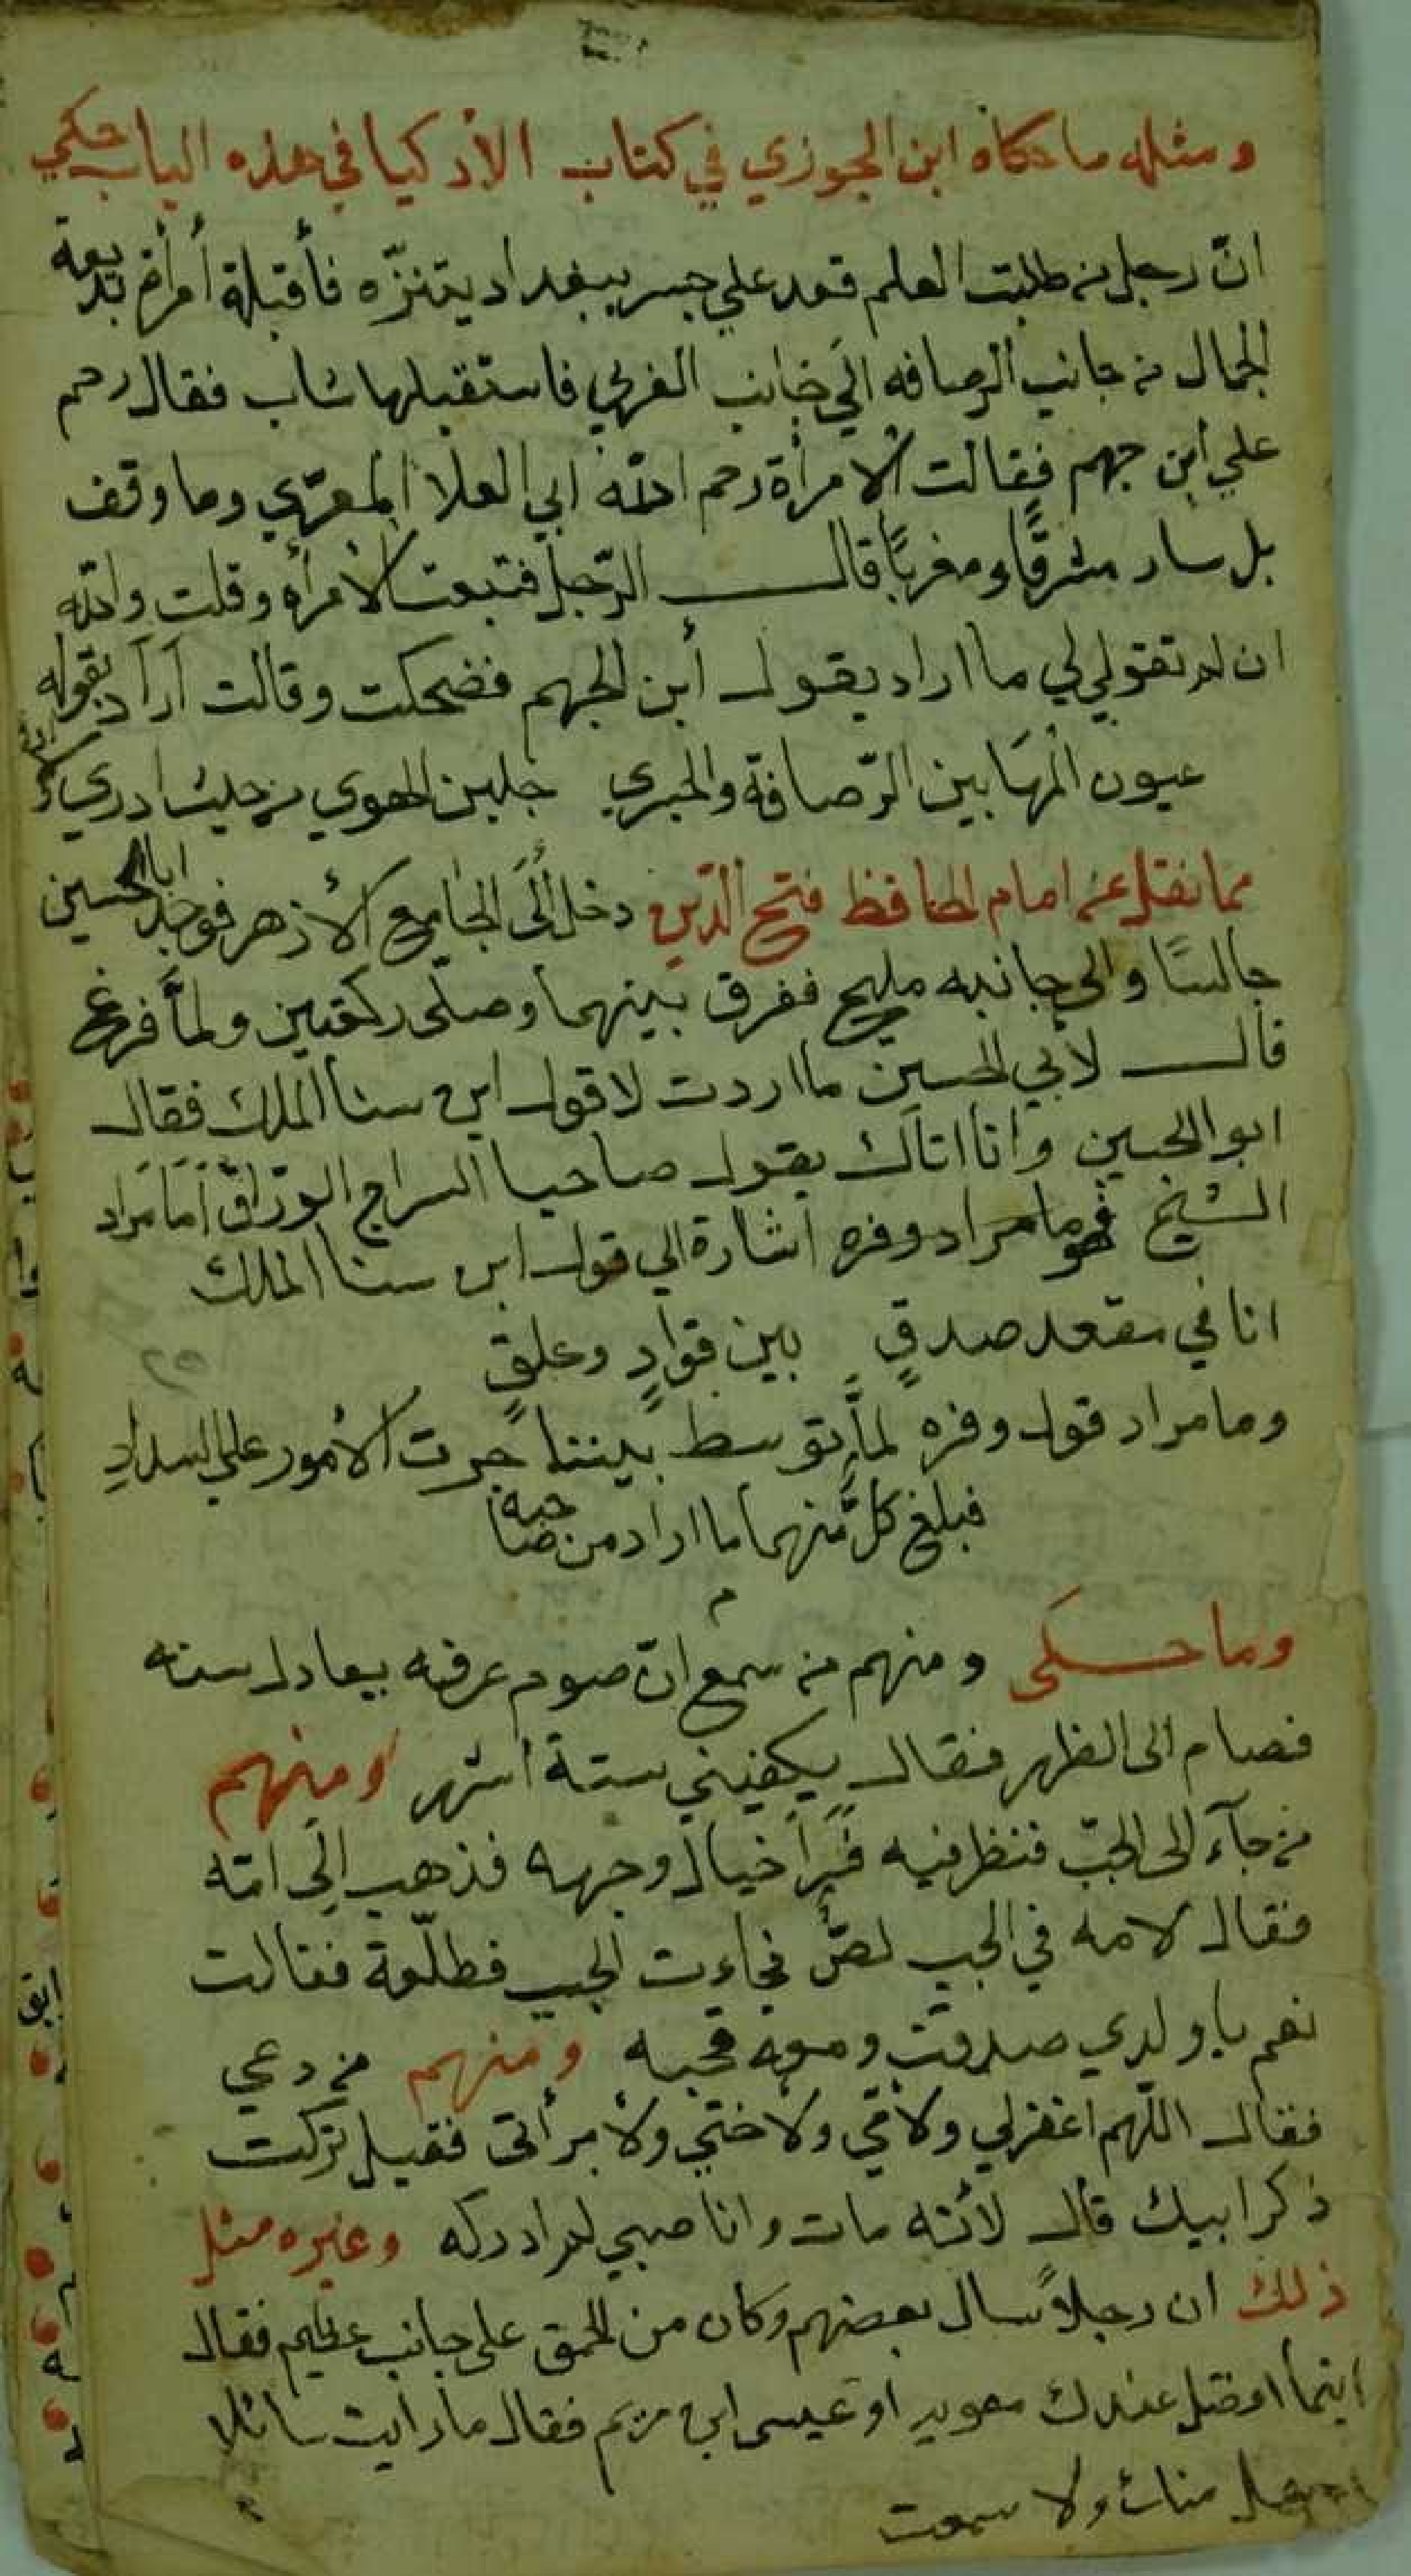 ومثله ما حكاه ابن الجوزي في كتاب الأدكيا في هذه الباب حكي
انّ رجل من طلبت العلم قعد علي جسر ببغداد يتنزّه فأقبلة أمرأة بديعة
الجمال من جانب الرصافه الي جانب الغربي فاستقبلها شاب فقال رحم
علي أبن جهم فقالت الامرأة رحم الله ابي العلا المعرّي وما وقف
بل سار مشرقًا ومغربًا قال الرّجل فتبعت الامرأه وقلت والله
ان لم تقولي لي ما اراد بقول أبن الجهم فضحكت وقالت آراد بقوله
عيون المهَا بين الرّصافة والجسري جلبن الهوي من حيث ادري
مما نقل عن امام الحافظ فتح الدّين دخل الَى الجامع الأزهر فوجد ابا الحسين
جالسًا والى جانبه مليح ففرق بَينهما وصلّى ركعتين ولمّا فرغ
قال لأبي الحسين ما اردت لا قول ابن سنا الملك فقال
ابو الحسين وانا اتاَلك بقول صاحبا السراج الورّاق أمَا مَراد
الشيخ فهو ما مراد وفره أشارة الي قول ابن سنا الملك
انا في مقعد صدقٍ بين قوّادٍ وعلقٍ
وما مراد قول وفره لمّا توسط بيننا جرت الأمور علي السدادِ
فبلغ كلّ منهما ما اراد من صاحبه
وما حكَى ومنهم من سمع انّ صوم عرفه يعادل سنه
فصام الى الظهر فقال يكفيني ستة أشهر ومنهم
من جآء الى الجبّ فنظر فيه فَرأ خيال وجهه فذهب الَى امّه
فقال لامه في الجب لصّ فجاءت الجب فطلّعة فقالت
نعم يا ولدي صدقت ومعه قحبه ومنهم من دعي
فقال اللّهم اغفرلي ولأمّي ولاختي ولأمرأتى فقيل تركت
ذكر ابيك قال لأنّه مات وانا صبي لم ادركه وغيره مثل
ذلك ان رجلاً سال بعضهم وكان من الحمق على جانب عظيم فقال
ايّما افضل عندك معويه او عيسى ابن مريم فقال ما رايت سائلا
اجهل منك ولا سمعت